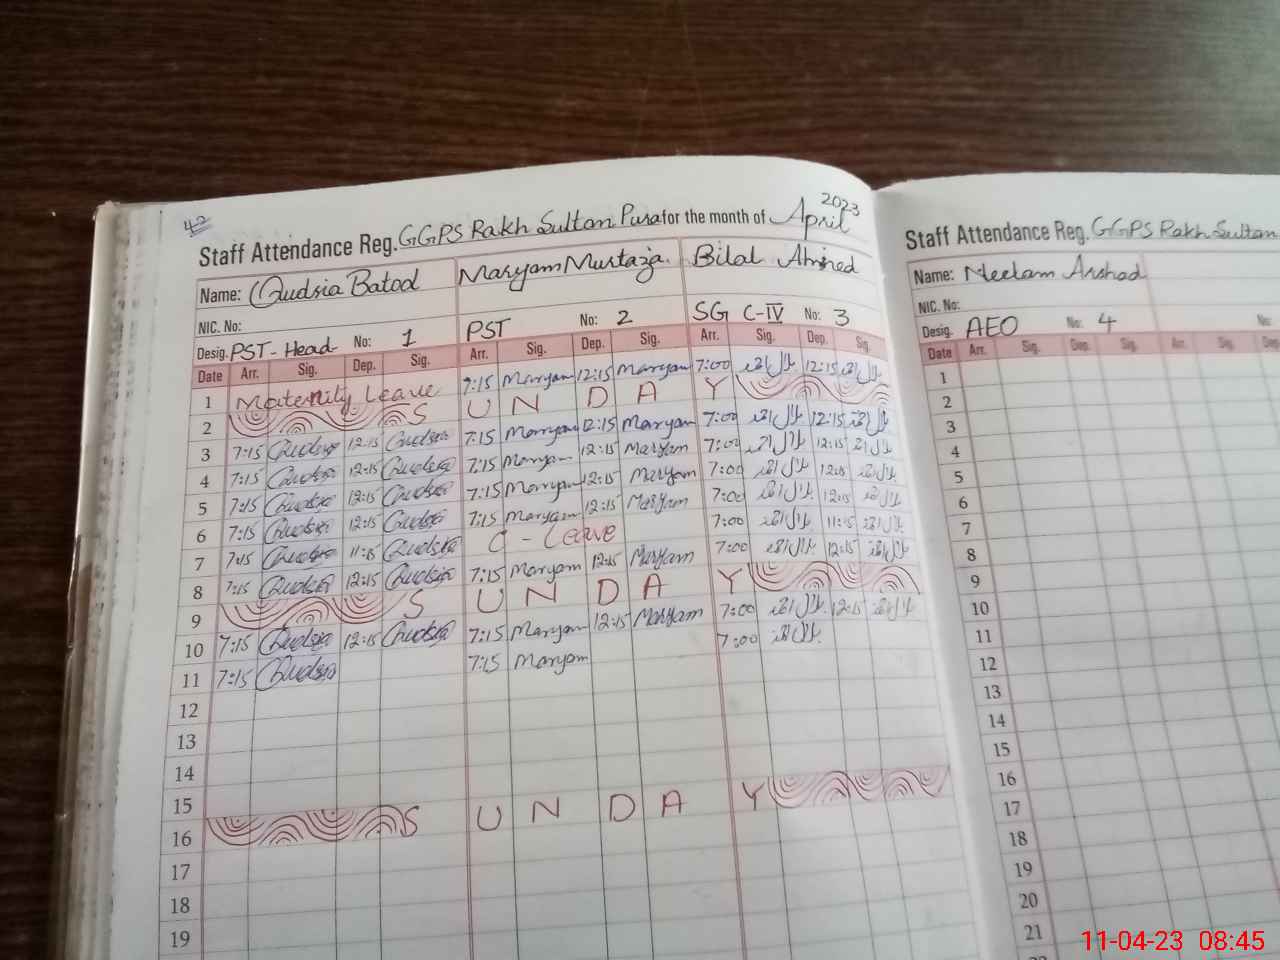 42
2023
Staff Attendance Reg. GGPS Rakh Sultan Pura for the month of April
Name: Qudsia Batool Maryam Murtaza Bilal Ahmed
NIC. No:
Desig. PST-Head No: 1 PST No: 2 SG C-IV No: 3
Date Arr. Sig. Dep. Sig. Arr. Sig. Dep. Sig. Arr. Sig. Dep. Sig.
1 Maternity Leave 7:15 Maryam 12:15 Maryam 7:00 بلال احمد 12:15 بلال احمد
2 S U N D A Y
3 7:15 Qudsia 12:15 Qudsia 7:15 Maryam 12:15 Maryam 7:00 بلال احمد 12:15 بلال احمد
4 7:15 Qudsia 12:15 Qudsia 7:15 Maryam 12:15 Maryam 7:00 بلال احمد 12:15 بلال احمد
5 7:15 Qudsia 12:15 Qudsia 7:15 Maryam 12:15 Maryam 7:00 بلال احمد 12:15 بلال احمد
6 7:15 Qudsia 12:15 Qudsia 7:15 Maryam 12:15 Maryam 7:00 بلال احمد 12:15 بلال احمد
7 7:15 Qudsia 11:15 Qudsia C-Leave 7:00 بلال احمد 11:15 بلال احمد
8 7:15 Qudsia 12:15 Qudsia 7:15 Maryam 12:15 Maryam 7:00 بلال احمد 12:15 بلال احمد
9 S U N D A Y
10 7:15 Qudsia 12:15 Qudsia 7:15 Maryam 12:15 Maryam 7:00 بلال احمد 12:15 بلال احمد
11 7:15 Qudsia 7:15 Maryam 7:00 بلال احمد
12
13
14
15
16 S U N D A Y
17
18
19
Staff Attendance Reg. GGPS Rakh Sultan
Name: Neelam Arshad
NIC. No:
Desig. AEO No: 4 No:
Date Arr. Sig. Dep. Sig. Arr. Sig. Dep.
1
2
3
4
5
6
7
8
9
10
11
12
13
14
15
16
17
18
19
20
21
11-04-23 08:45